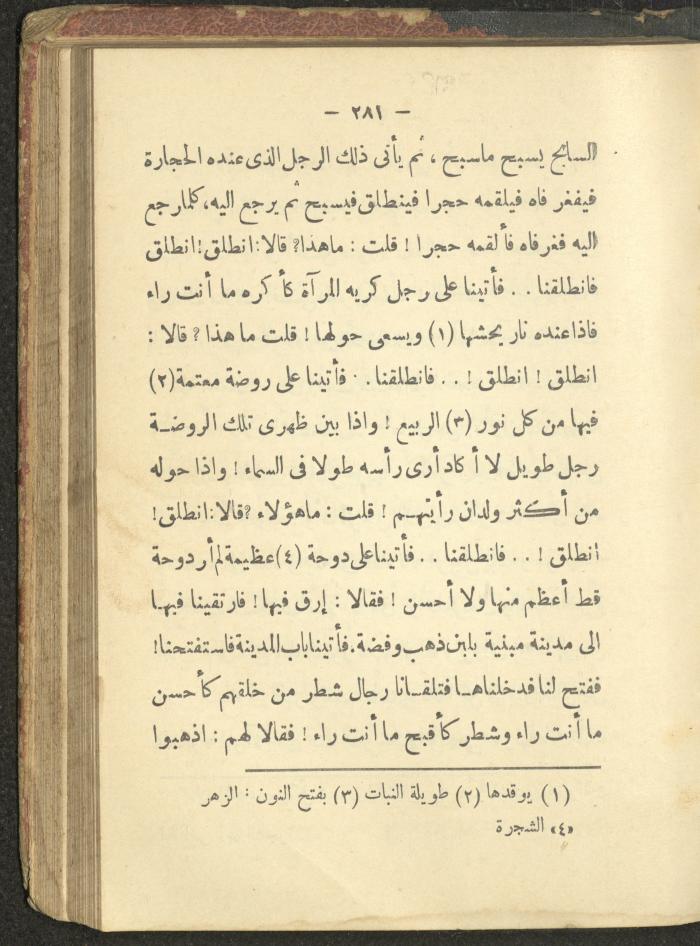 — ٢٨١ —
السابح يسبح ماسبح ، ثم يأتى ذلك الرجل الذى عنده الحجارة
فيفغر فاه فيلقمه حجرا فينطلق فيسبح ثم يرجع اليه، كلمارجع
اليه فغرفاه فألقمه حجرا ! قلت : ماهذا? قالا: انطلق! انطلق
فانطلقنا . . فأتينا على رجل كريه المرآة كأكره ما أنت راء
فاذا عنده نار يحشها (١) ويسعى حولها ! قلت ما هذا ? قالا :
انطلق ! انطلق ! . . فانطلقنا . . فأتينا على روضة معتمة (٢)
فيها من كل نور (٣) الربيع ! واذا بين ظهرى تلك الروضة
رجل طويل لا أكاد أرى رأسه طولا فى السماء ! واذا حوله
من أكثر ولدان رأيتهم ! قلت : ماهؤلاء ? قالا: انطلق!
انطلق ! . . فانطلقنا . . فأتينا على دوحة (٤) عظيمة لم أر دوحة
قط أعظم منها ولا أحسن ! فقالا : إرق فيها ! فارتقينا فيها
الى مدينة مبنية بلبن ذهب وفضة. فأتينا باب المدينة فاستفتحنا!
ففتح لنا فدخلناها فتلقانا رجال شطر من خلقهم كأحسن
ما أنت راء وشطر كأقبح ما أنت راء ! فقالا لهم : اذهبوا
(١) يوقدها (٢) طويلة النبات (٣) بفتح النون : الزهر
«٤» الشجرة